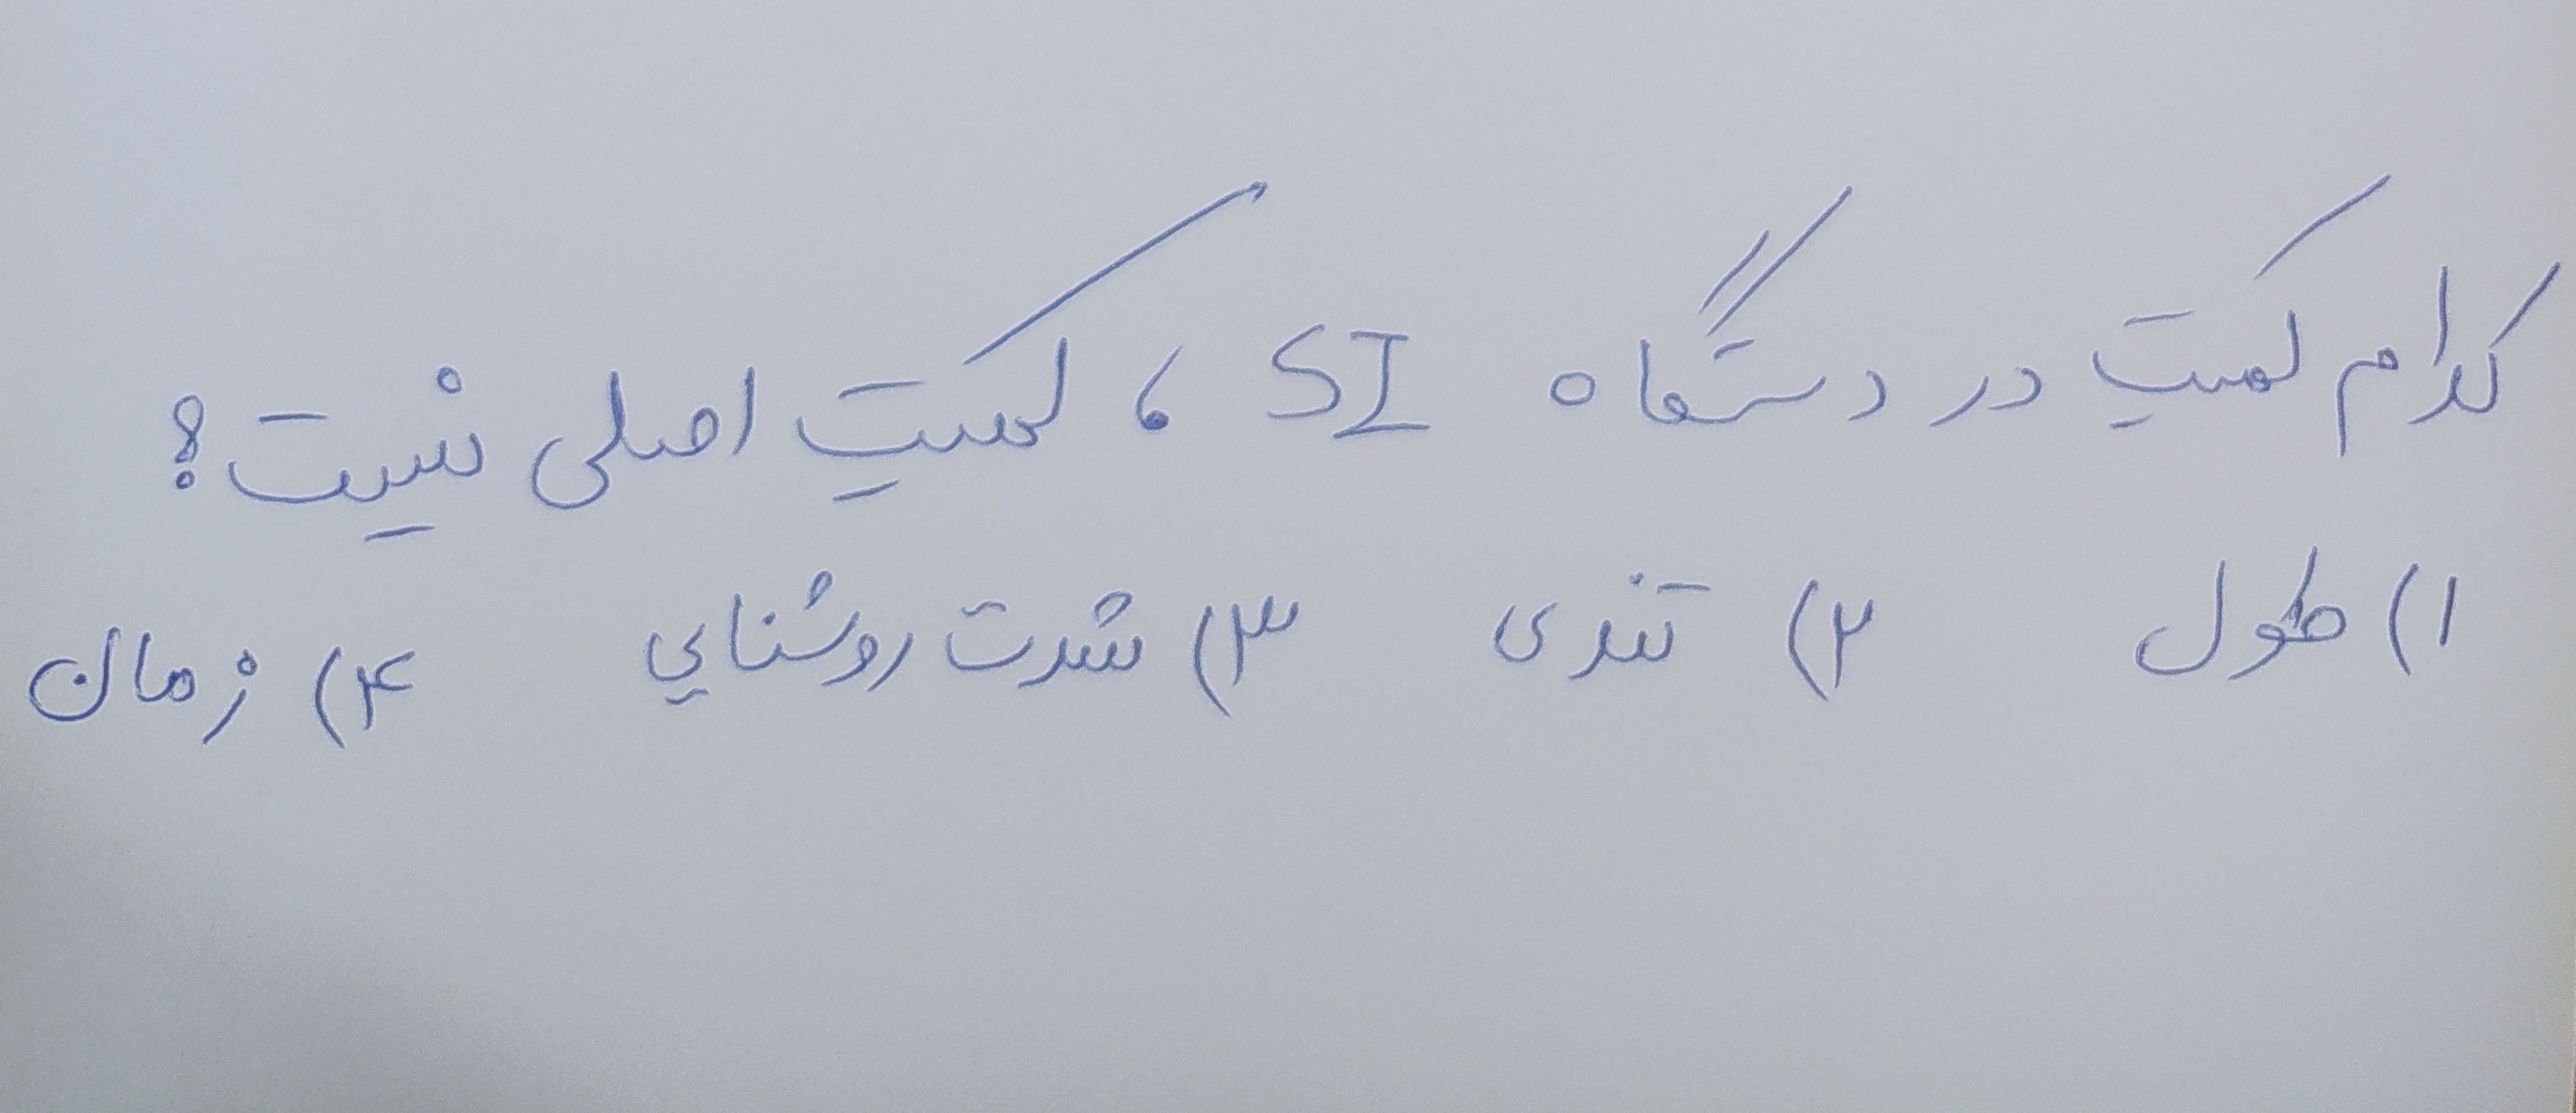 کدام کمیت در دستگاه SI ، کمیت اصلی نیست؟
۱) طول ۲) تندی ۳) شدت روشنایی ۴) زمان